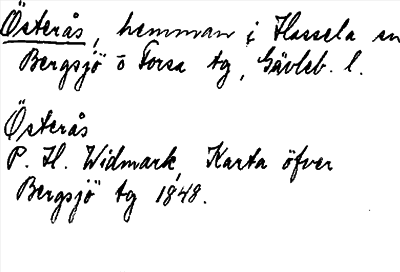 Österås, hemman i Hassela sn
Bergsjö o Forsa tg, Gävleb. l.
Österås
P. H. Widmark, Karta öfver
Bergsjö tg 1848.